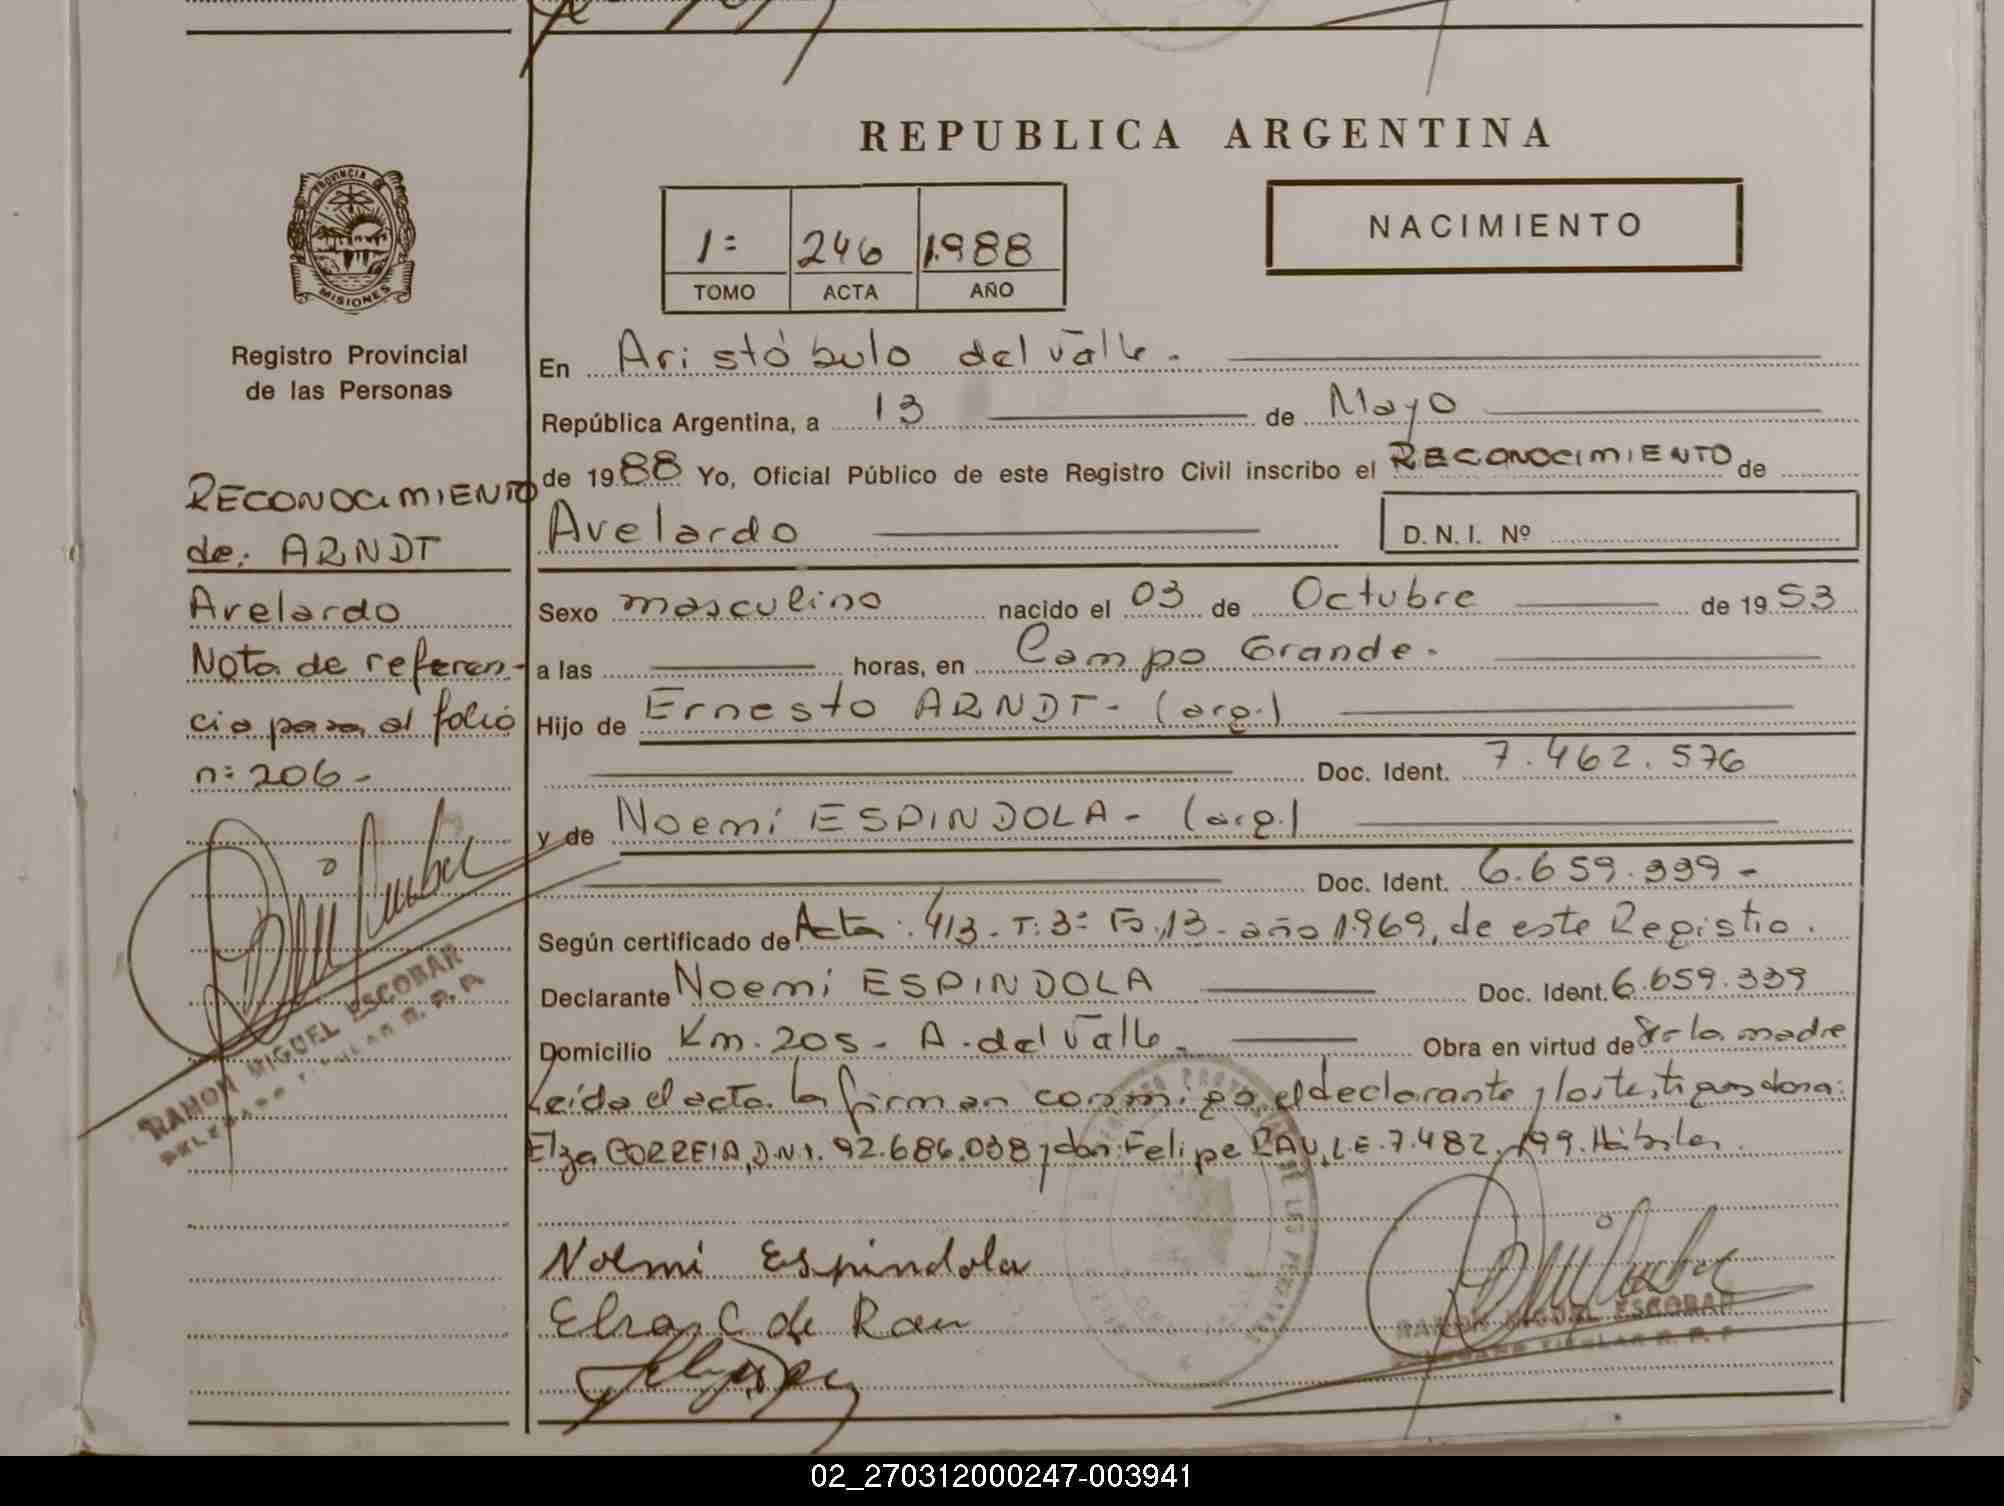 REPUBLICA ARGENTINA
PROVINCIA DE
MISIONES
1= 246 1.988
TOMO ACTA AÑO
NACIMIENTO
Registro Provincial
de las Personas
RECONOCIMIENTO
de: ARNDT
Avelardo
Nota de referen-
cia para al folio
n= 206-
RAMON MIGUEL ESCOBAR
DELEGADO TITULAR R. P. P.
En Aristóbulo del Valle.
República Argentina, a 13 de Mayo
de 1988 Yo, Oficial Público de este Registro Civil inscribo el RECONOCIMIENTO de
Avelardo D. N. I. Nº
Sexo masculino nacido el 03 de Octubre de 1953
a las horas, en Campo Grande.
Hijo de Ernesto ARNDT- (arg.)
Doc. Ident. 7.462.576
y de Noemi ESPINDOLA- (arg.)
Doc. Ident. 6.659.339-
Según certificado de Acta: 413- T: 3= Fo. 13- año 1.969, de este Registro.
Declarante Noemi ESPINDOLA Doc. Ident. 6.659.339
Domicilio Km. 205- A. del Valle. Obra en virtud de Ser la madre
Leída el acta la firman conmigo, el declarante y los testigos dona:
Elza CORREIA, D.N.I. 92.686.038 y don: Felipe RAU, L.E. 7.482.199. Hábiles.
Noemi Espindola
Elza C de Rau
RAMON MIGUEL ESCOBAR
DELEGADO TITULAR R. P. P.
02_270312000247-003941